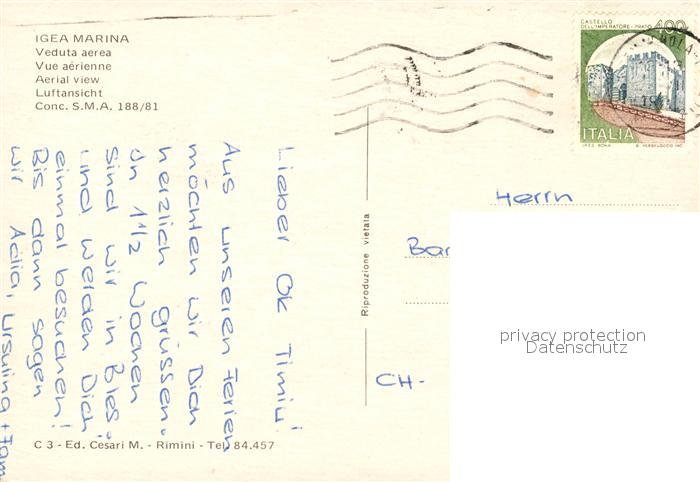 IGEA MARINA
Veduta aerea
Vue aérienne
Aerial view
Luftansicht
Conc. S.M.A. 188/81
CASTELLO
DELL'IMPERATORE - PRATO 400
ITALIA
I.P.Z.S. ROMA
Lieber Ok Timiu!
Aus unseren Ferien
möchten wir Dich
herzlich grüssen.
In 1 1/2 Wochen
sind wir in Bles.
und werden Dich
einmal besuchen!
Bis dann sagen
wir Adio, Ursulina + Fam
Riproduzione vietata
Herrn
Bar
CH-
privacy protection
Datenschutz
C 3 - Ed. Cesari M. - Rimini - Tel. 84.457